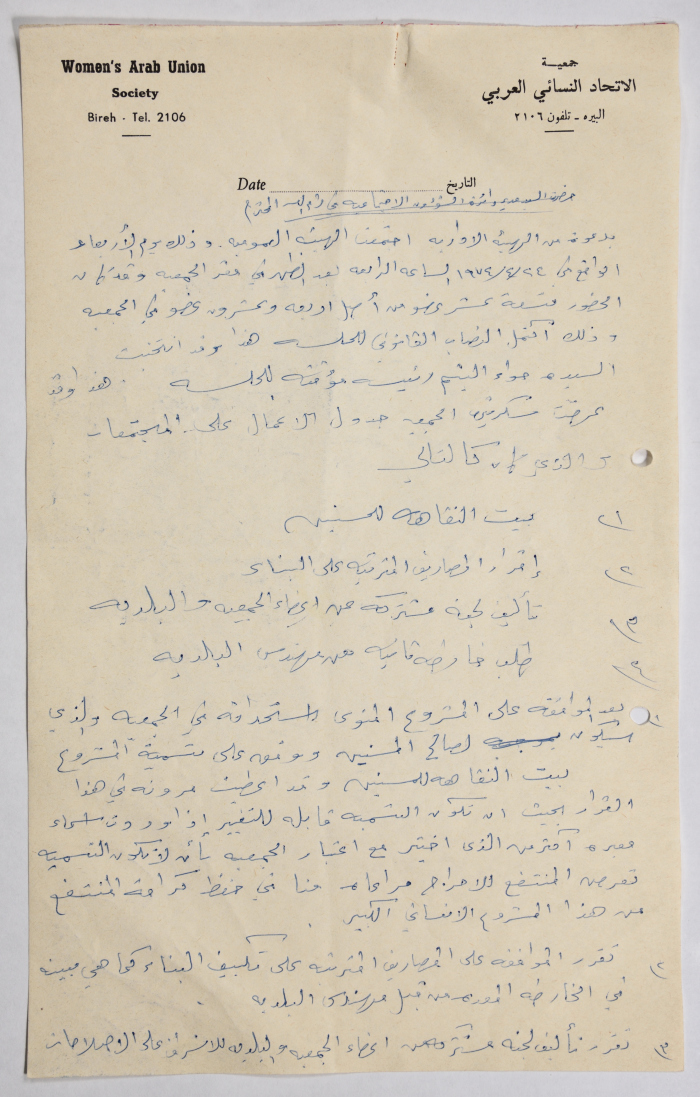 Women's Arab Union
Society
Bireh - Tel. 2106
جمعيـــة
الاتحاد النسائي العربي
البيره - تلفون ٢١٠٦
Date التاريخ
حضرة السيد مدير دائرة الشؤون الاجتماعيه في رام الله المحترم
بدعوة من الهيئة الاداريه اجتمعت الهيئة العموميه. وذلك يوم الأربعاء
الواقع في الساعه الرابعه بعد الظهر في مقر الجمعيه وقد كان
الحضور تسعة عشر عضو من أصل اربعه وعشرون عضو في الجمعيه
وذلك أكتمل النصاب القانوني للجلسه هذا وقد انتخبت
السيده حواء اليتيم رئيسه مؤقته للجلسه . هذا وقد
عرضت سكرتيرة الجمعيه جدول الاعمال على المجتمعات
والذي كان كالتالي
١) بيت النقاهه للمسنين
٢) إقرار المصاريف المترتبه على البناء
٣) تأليف لجنه مشتركه من اعضاء الجمعيه والبلديه
٤) طلب خارطه ثانيه من مهندس البلديه
١) بعد الموافقه على المشروع المنوى استحداثه في الجمعيه والذي
سيكون لصالح المسنين ووفق على تسمية المشروع
بيت النقاهه للمسنين وقد اعطيت مرونه في هذا
القرار بحيث ان تكون التسميه قابله للتغيير إذا وردت اسماء
معبره أكثر من الذى اختير مع اعتبار الجمعيه بأن لا تكون التسميه
تعرض المنتفع للاحراج مراعاه منا في حفظ كرامة المنتفع
من هذا المشروع الانساني الكبير.
٢) تقرر الموافقه على المصاريف المترتبه على تكليف البناء كما هي مبينه
في الخارطه من قبل مهندس البلديه
٣) تقرر تأليف لجنه مشتركه من اعضاء الجمعيه والبلديه للاشراف على الاصلاحات